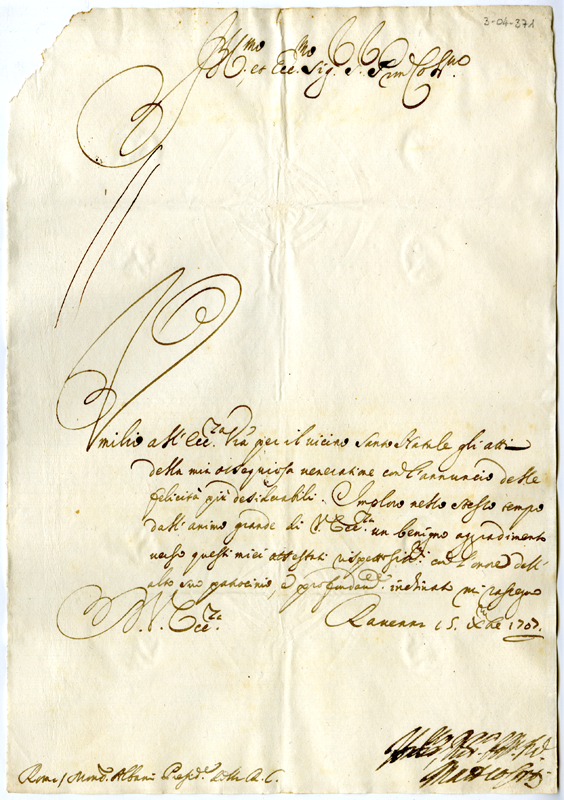 3-04-371
Ill.mo et Ecc.mo Sig. P.ron Col.mo
Vmilio all'Ecc.za Vra per il vicino Santo Natale gli atti
della mia ossequiosa veneratione con l'annuncio delle
felicità più desiderabili. Imploro nello stesso tempo
dall'animo grande di V. Ecc.za un benigno aggradimento
verso questi miei attestati rispettosi, con l'onore dell'
alto suo patrocinio, e profondam.te inclinato mi rassegno
D. V. Ecc.za Ravenna 15. Xbre 1707.
Roma / Mons. Albani Presid.e della R. C.